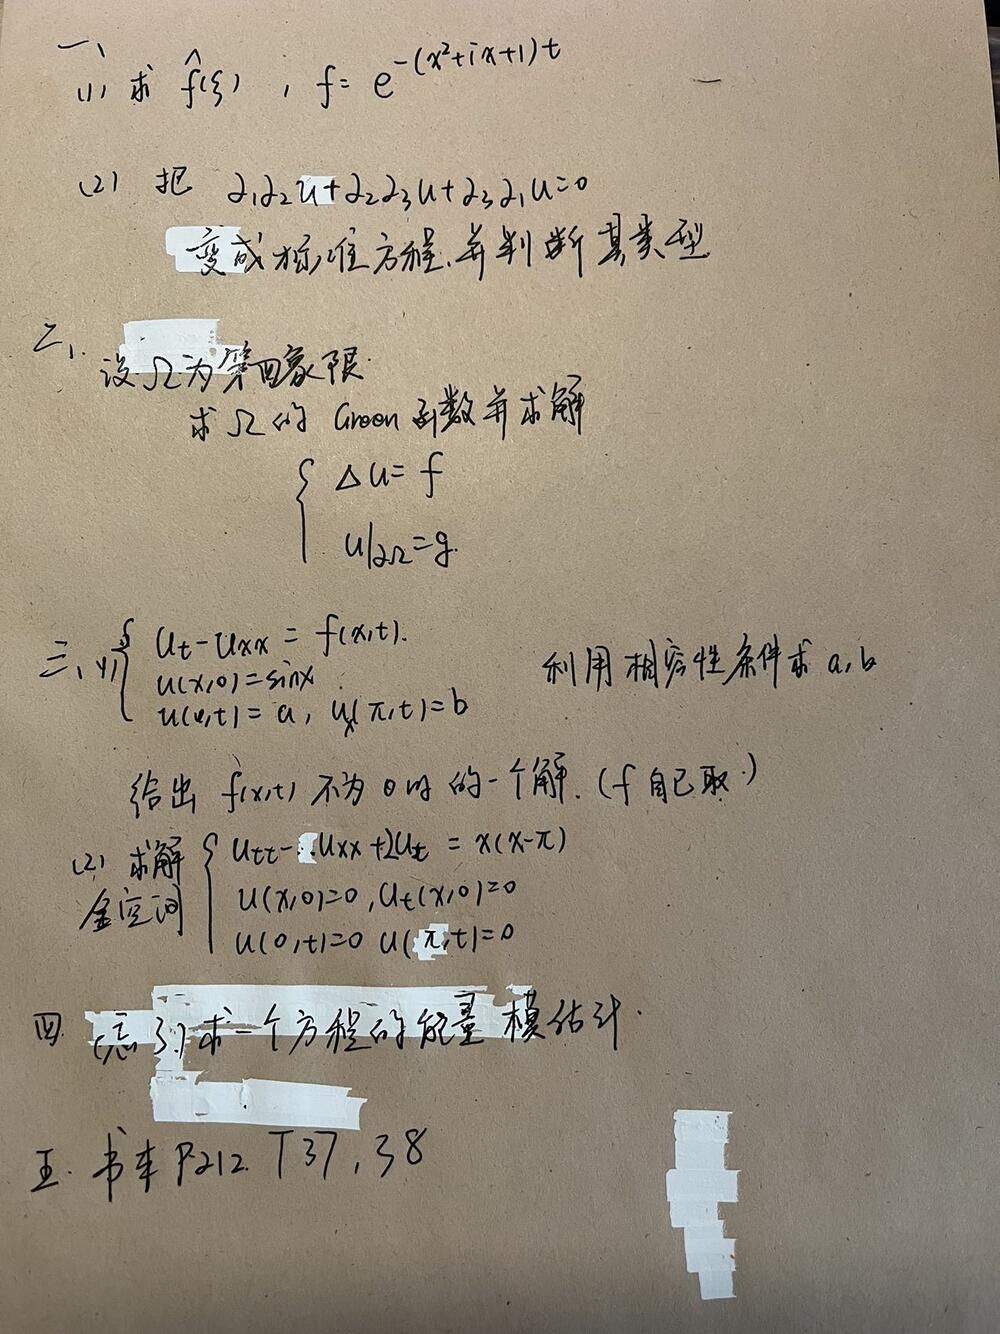 一、
(1) 求 f̂(ξ) , f = e^{-(x²+ix+1)t}
(2) 把 ∂₁∂₂u+∂₂∂₃u+∂₃∂₁u=0
变成标准方程、并判断其类型
二、
设Ω为第四象限.
求Ω的 Green 函数并求解
Δu = f
u|∂Ω = g.
三、(1) u_t - u_xx = f(x,t).
u(x,0) = sinx 利用相容性条件求 a, b
u(0,t) = a, u_x(π,t) = b
给出 f(x,t) 不为0时的一个解. (f 自己取.)
(2) 求解 u_tt - u_xx + 2u_t = x(x-π)
u(x,0)=0, u_t(x,0)=0
u(0,t)=0 u(π,t)=0
四. (忘了) 求一个方程的能量模估计.
五. 书本 P212. T37, 38